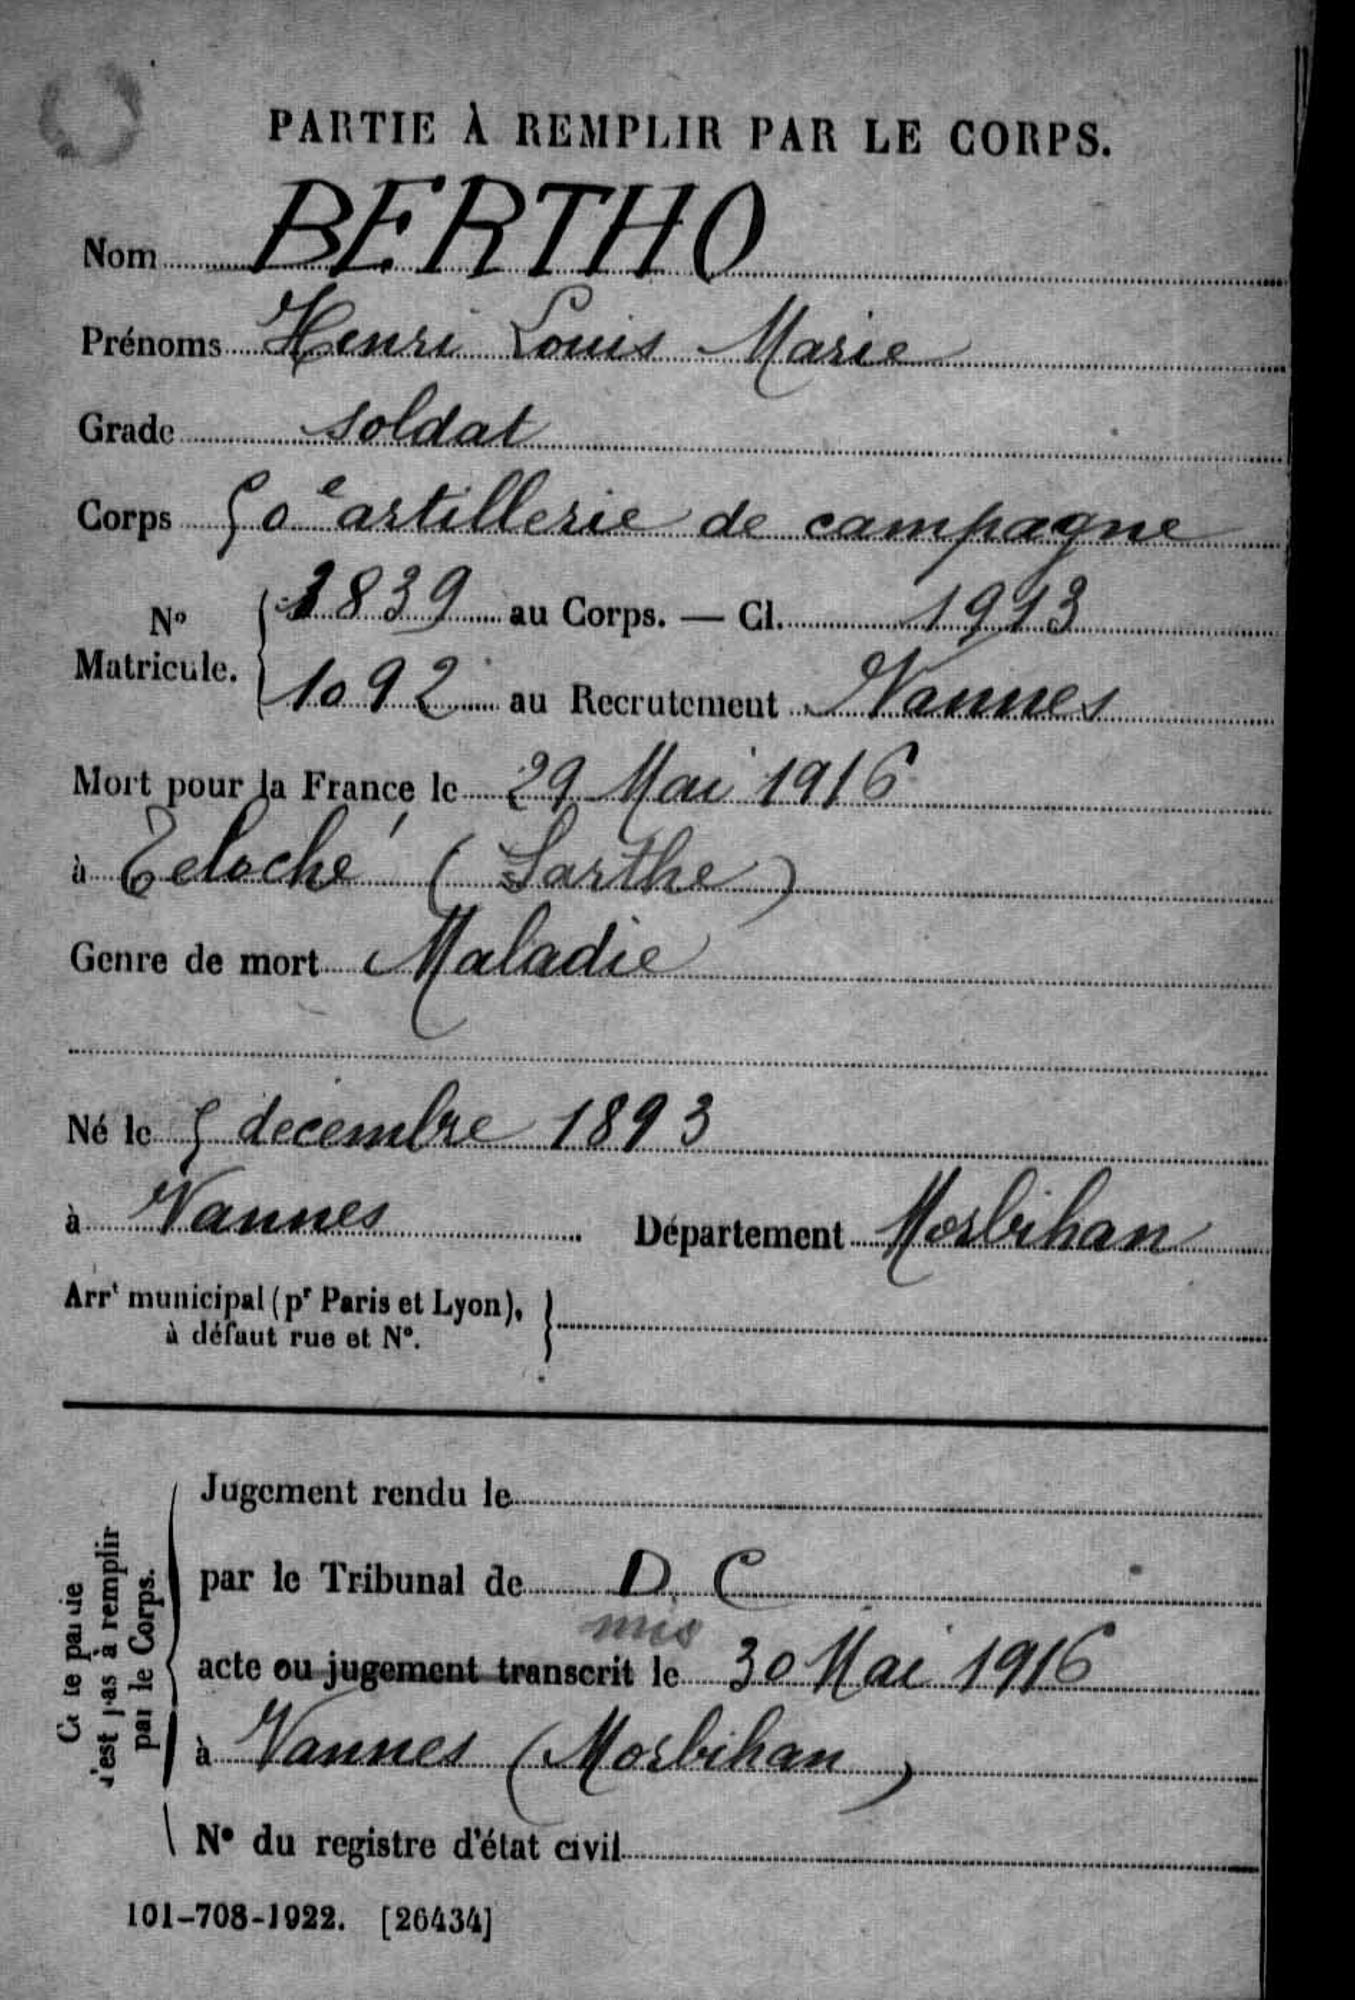 PARTIE À REMPLIR PAR LE CORPS.
Nom BERTHO
Prénoms Henri Louis Marie
Grade soldat
Corps 50e artillerie de campagne
No Matricule. { 3839 au Corps. — Cl. 1913
1092 au Recrutement Vannes
Mort pour la France le 29 Mai 1916
à Teloché (Sarthe)
Genre de mort Maladie
Né le 5 decembre 1893
à Vannes Département Morbihan
Arrt municipal (pr Paris et Lyon), }
à défaut rue et No.
Jugement rendu le
par le Tribunal de D. C
mis
acte ou jugement transcrit le 30 Mai 1916
à Vannes (Morbihan)
No du registre d'état civil
Ce te partie
n'est pas à remplir
par le Corps.
101-708-1922. [26434]